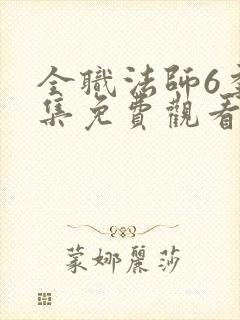 全職法師6季
集免費觀看
蒙娜麗莎